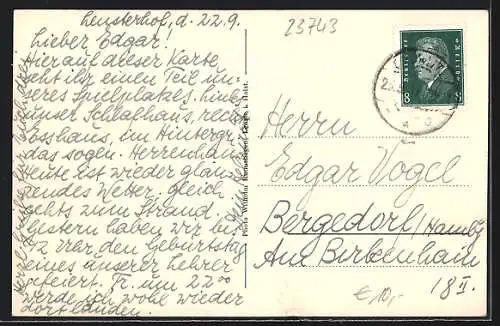 Leusterhof, d. 22.9.
Lieber Edgar!
Hier auf dieser Karte
seht ihr einen Teil un-
seres Spielplatzes. Links
unser Schlafhaus, rechts
Esshaus, im Hintergr.
das sogen. Herrenhaus.
Heute ist wieder glän-
zendes Wetter. Gleich
gehts zum Strand.
Gestern haben wir bis
12 Uhr den Geburtstag
eines unserer Lehrer
gefeiert. Fr. um 22⁰⁰
werde ich wohl wieder
dort landen.
Photo Wilhelm
23743
DEUTSCHES REICH
8 8
Herrn
Edgar Vogel
Bergedorf/Hambg
Am Birkenhain
18 II.
€ 10,-